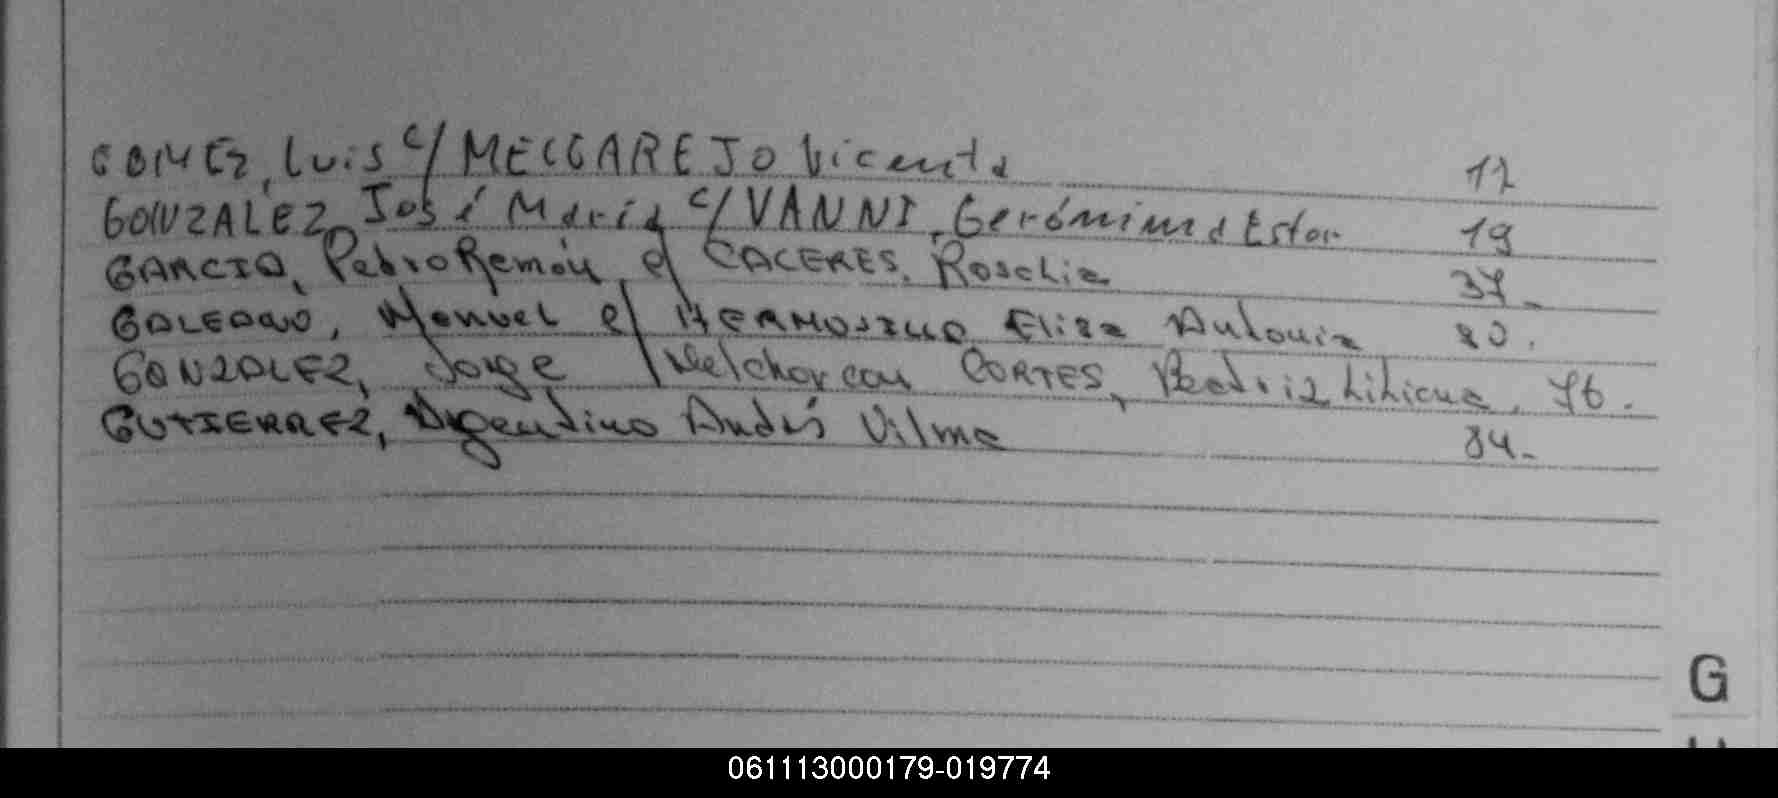 GOMEZ, Luis c/ MELGAREJO Vicenta 12
GONZALEZ José María c/ VANNI, Gerónima Ester 19
GARCIA, Pedro Ramón c/ CACERES, Rosalia 37.
GALEANO, Manuel c/ HERMOSILLA Elisa Antonia 80.
GONZALEZ, Jorge Melchor con CORTES, Beatriz Liliana. 76.
GUTIERREZ, Argentino Andrés Vilma 84.
G
061113000179-019774